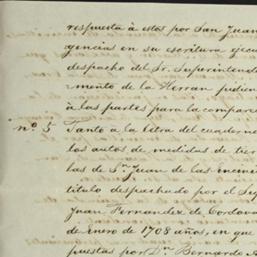 respuesta à estos por San Juan
gencias en su escritura ejecu
despacho del Sr. Superintende
mento de la Herran pudien
à las partes para la compare
nº 5 Tanto à la letra del cuaderno
los autos de medidas de tier
las de Sn. Juan de las encini
titulo despachado por el Seg
Juan Fernandez de Cordova
de enero de 1708 años, en que
puestas por Dn. Bernardo A